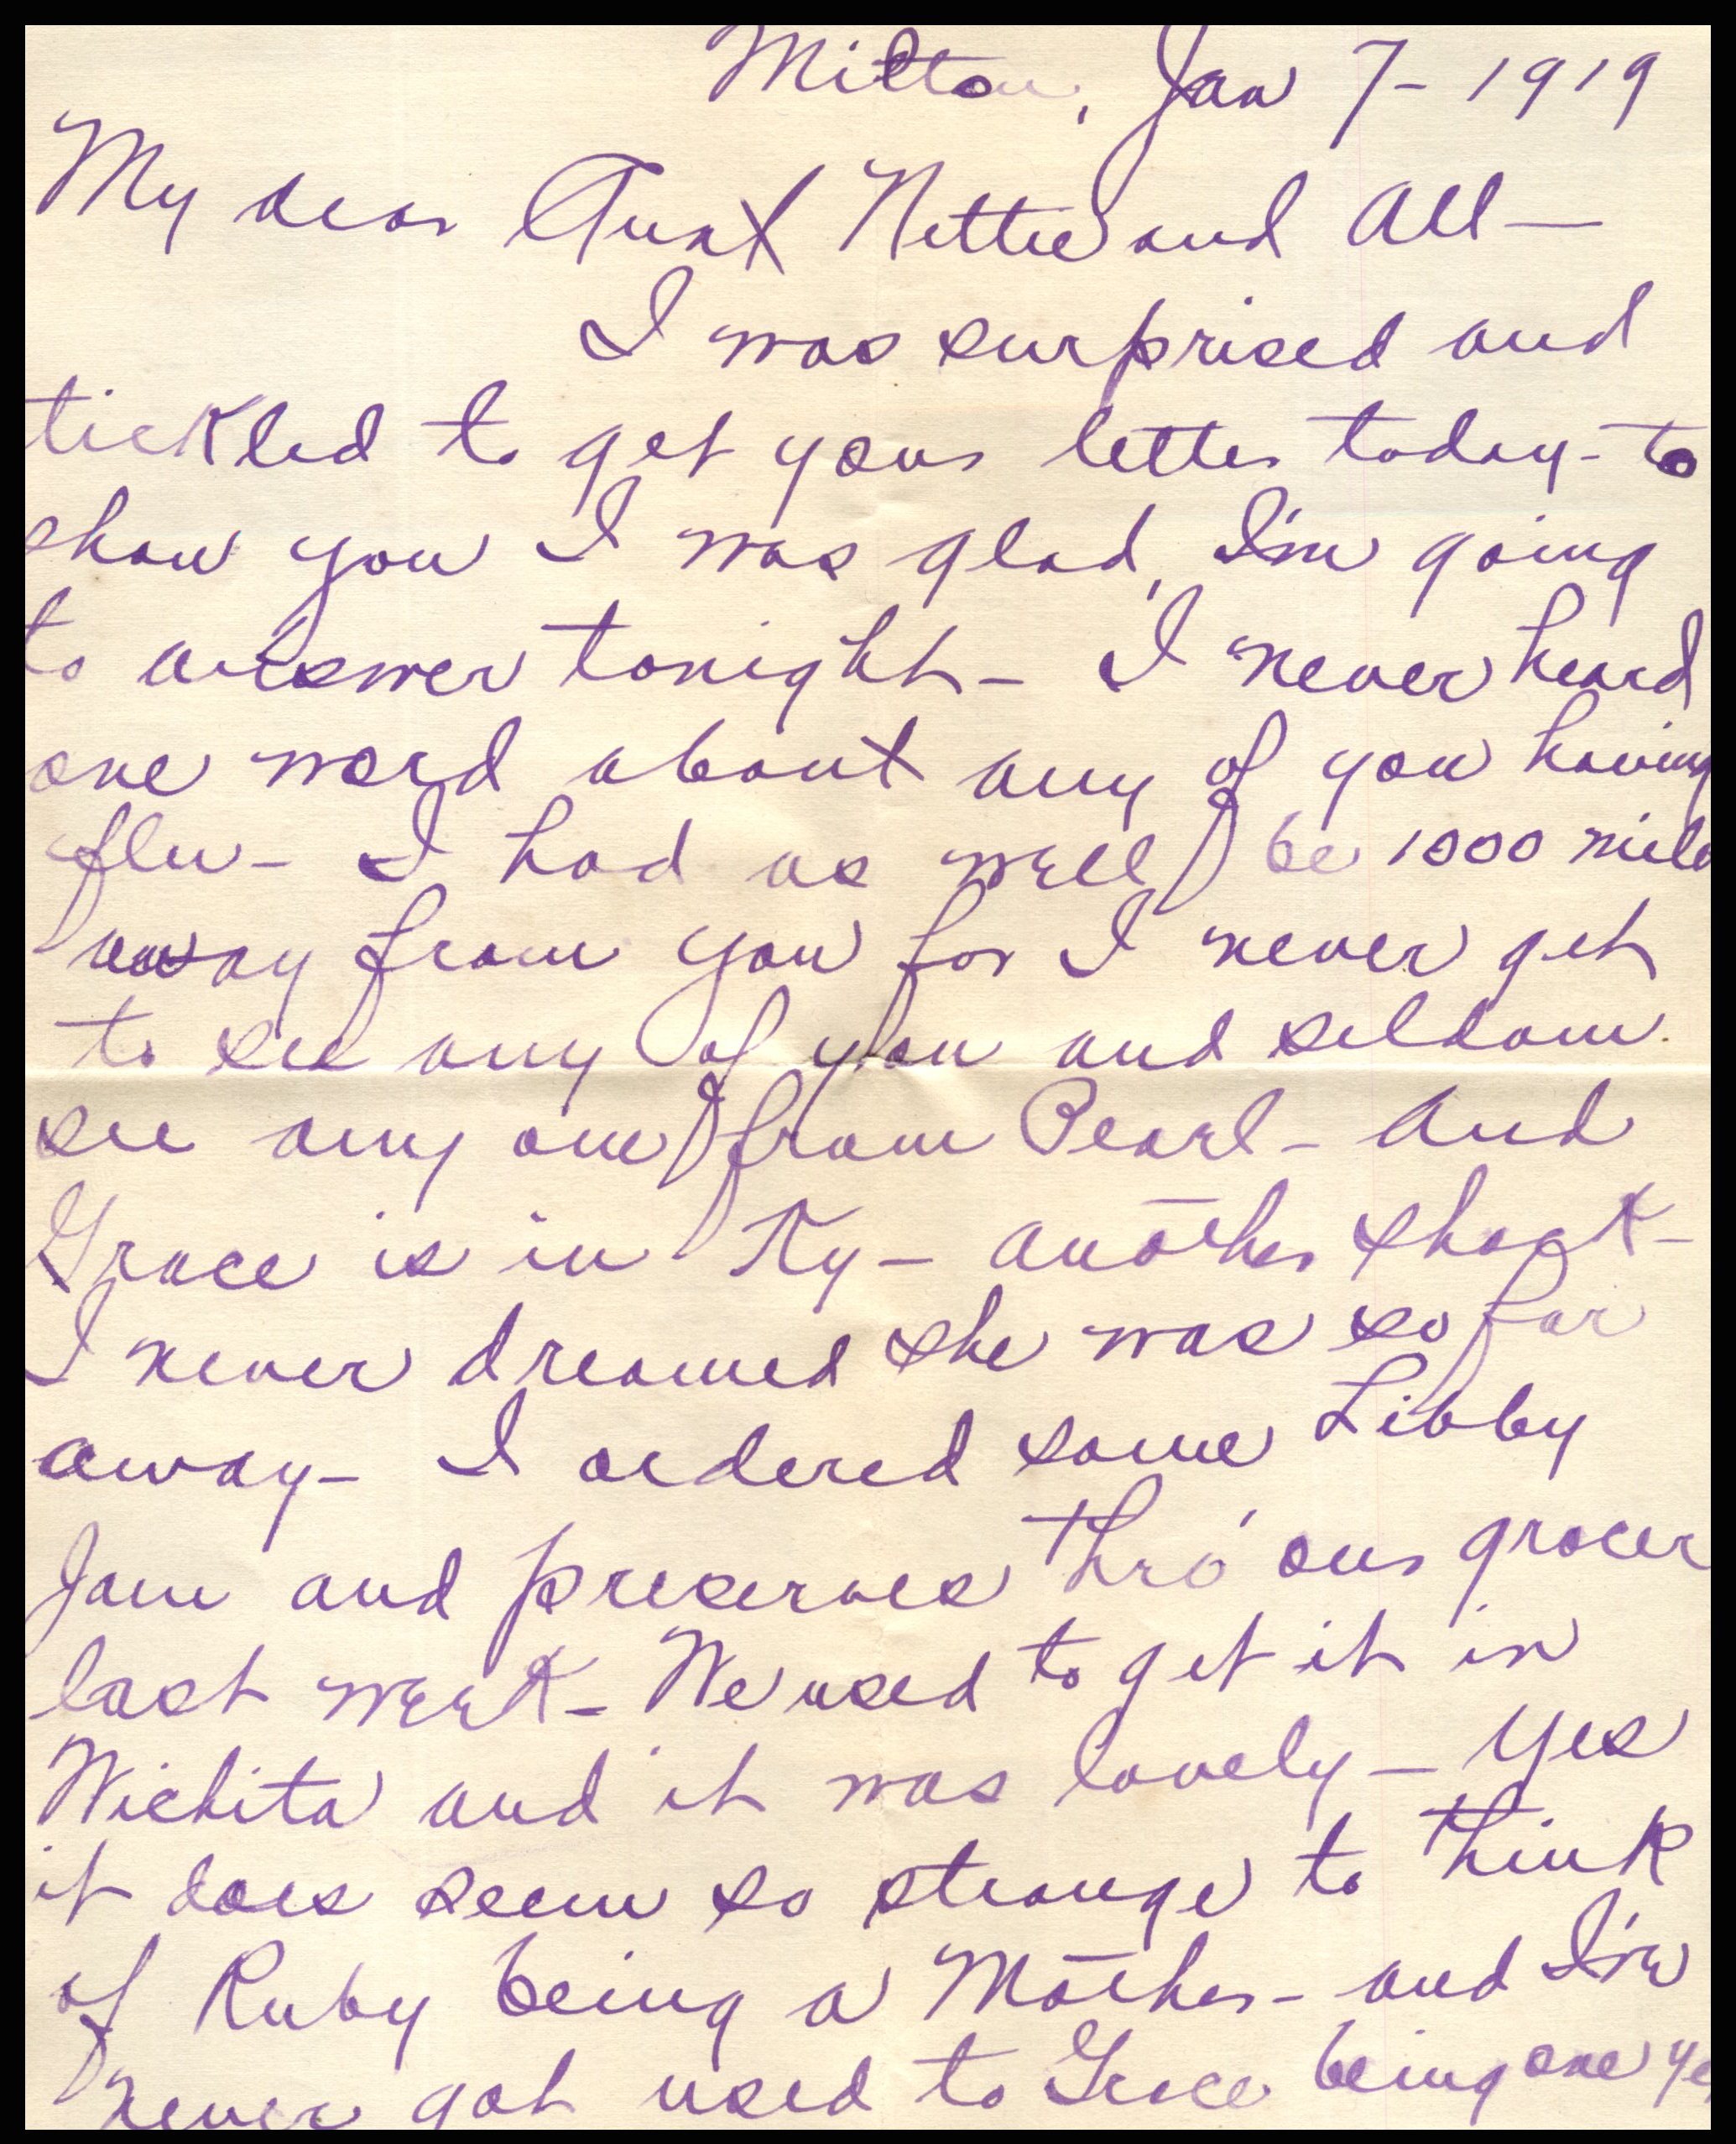 Milton, Jan 7 - 1919
My dear Aunt Nettie and All —
I was surprised and
tickled to get your letter today - to
show you I was glad, I'm going
to answer tonight - I never heard
one word about any of you having
flu - I had as well be 1000 mile
away from you for I never get
to see any of you and seldom.
see any one from Pearl - And
Grace is in Ky - another shock -
I never dreamed she was so far
away - I ordered some Libby
Jam and preserves thro' our grocer
last week - We used to get it in
Wichita and it was lovely - Yes
it does seem so strange to think
of Ruby being a Mother - and I'm
never got used to Grace being one ye